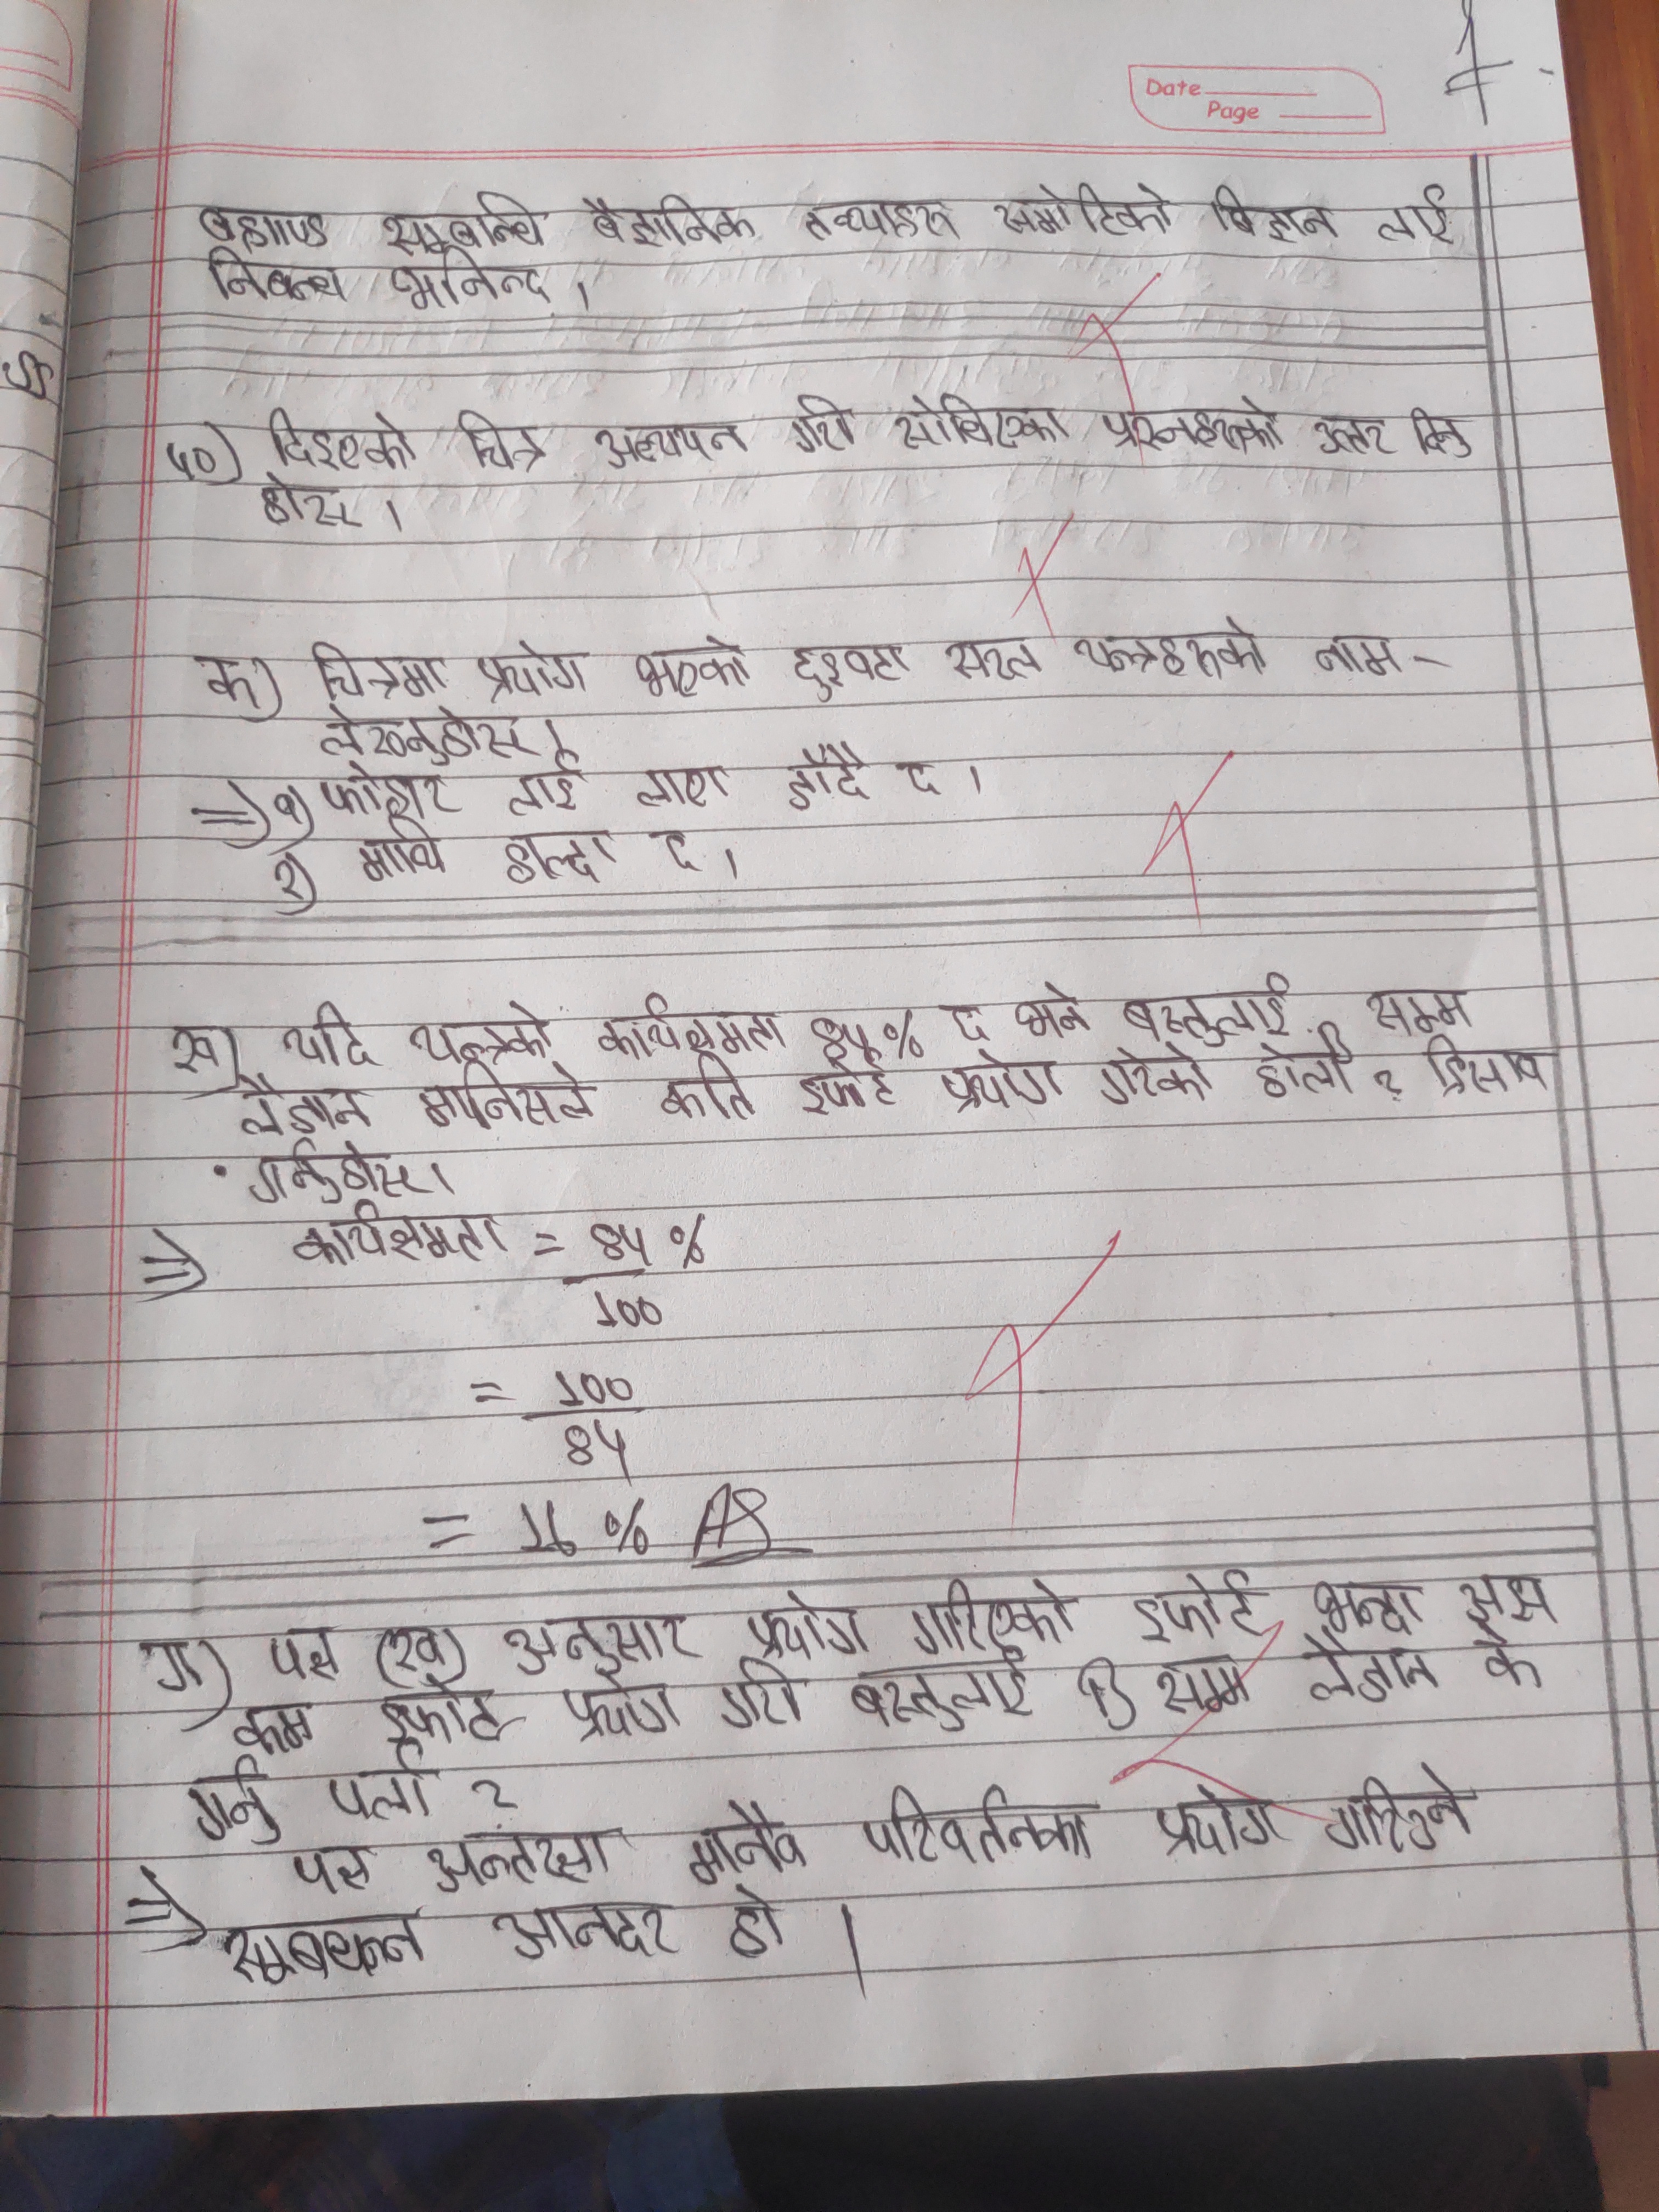 Date
Page
ब्रह्माण्ड सम्बन्धि बैज्ञानिक तथ्याहरु समोटिको बिज्ञान लाई
निबन्ध भनिन्छ ।
५०) दिइएको चित्र अध्ययन गरी सोधिएका प्रश्नहरुको उत्तर दिनु
होस् ।
क) चित्रमा प्रयोग भएको दुइवटा सरल यन्त्रहरुको नाम -
लेख्नुहोस् ।
=> १) फोहार लाई लाएा हाँदै छ ।
२) माथि हाल्दा छ ।
ख) यदि यन्त्रको कार्यक्षमता ८५% छ भने बस्तुलाई B सम्म
लैजान मानिसले कति इफोर्ट प्रयोग गरेको होला ? हिसाब
गर्नुहोस् ।
=> कार्यक्षमता = ८५ %
100
= 100
८५
= 16 % AS
ग) प्रश्न (ख) अनुसार प्रयोग गरिएको इफोर्ट भन्दा अझ
कम इफोर्ट प्रयोग गरी बस्तुलाई B सम्म लैजान के
गर्नु पर्ला ?
=> प्रश्न अन्तरक्षा मानव परिवर्तनका प्रयोग गरिउने
हो ।